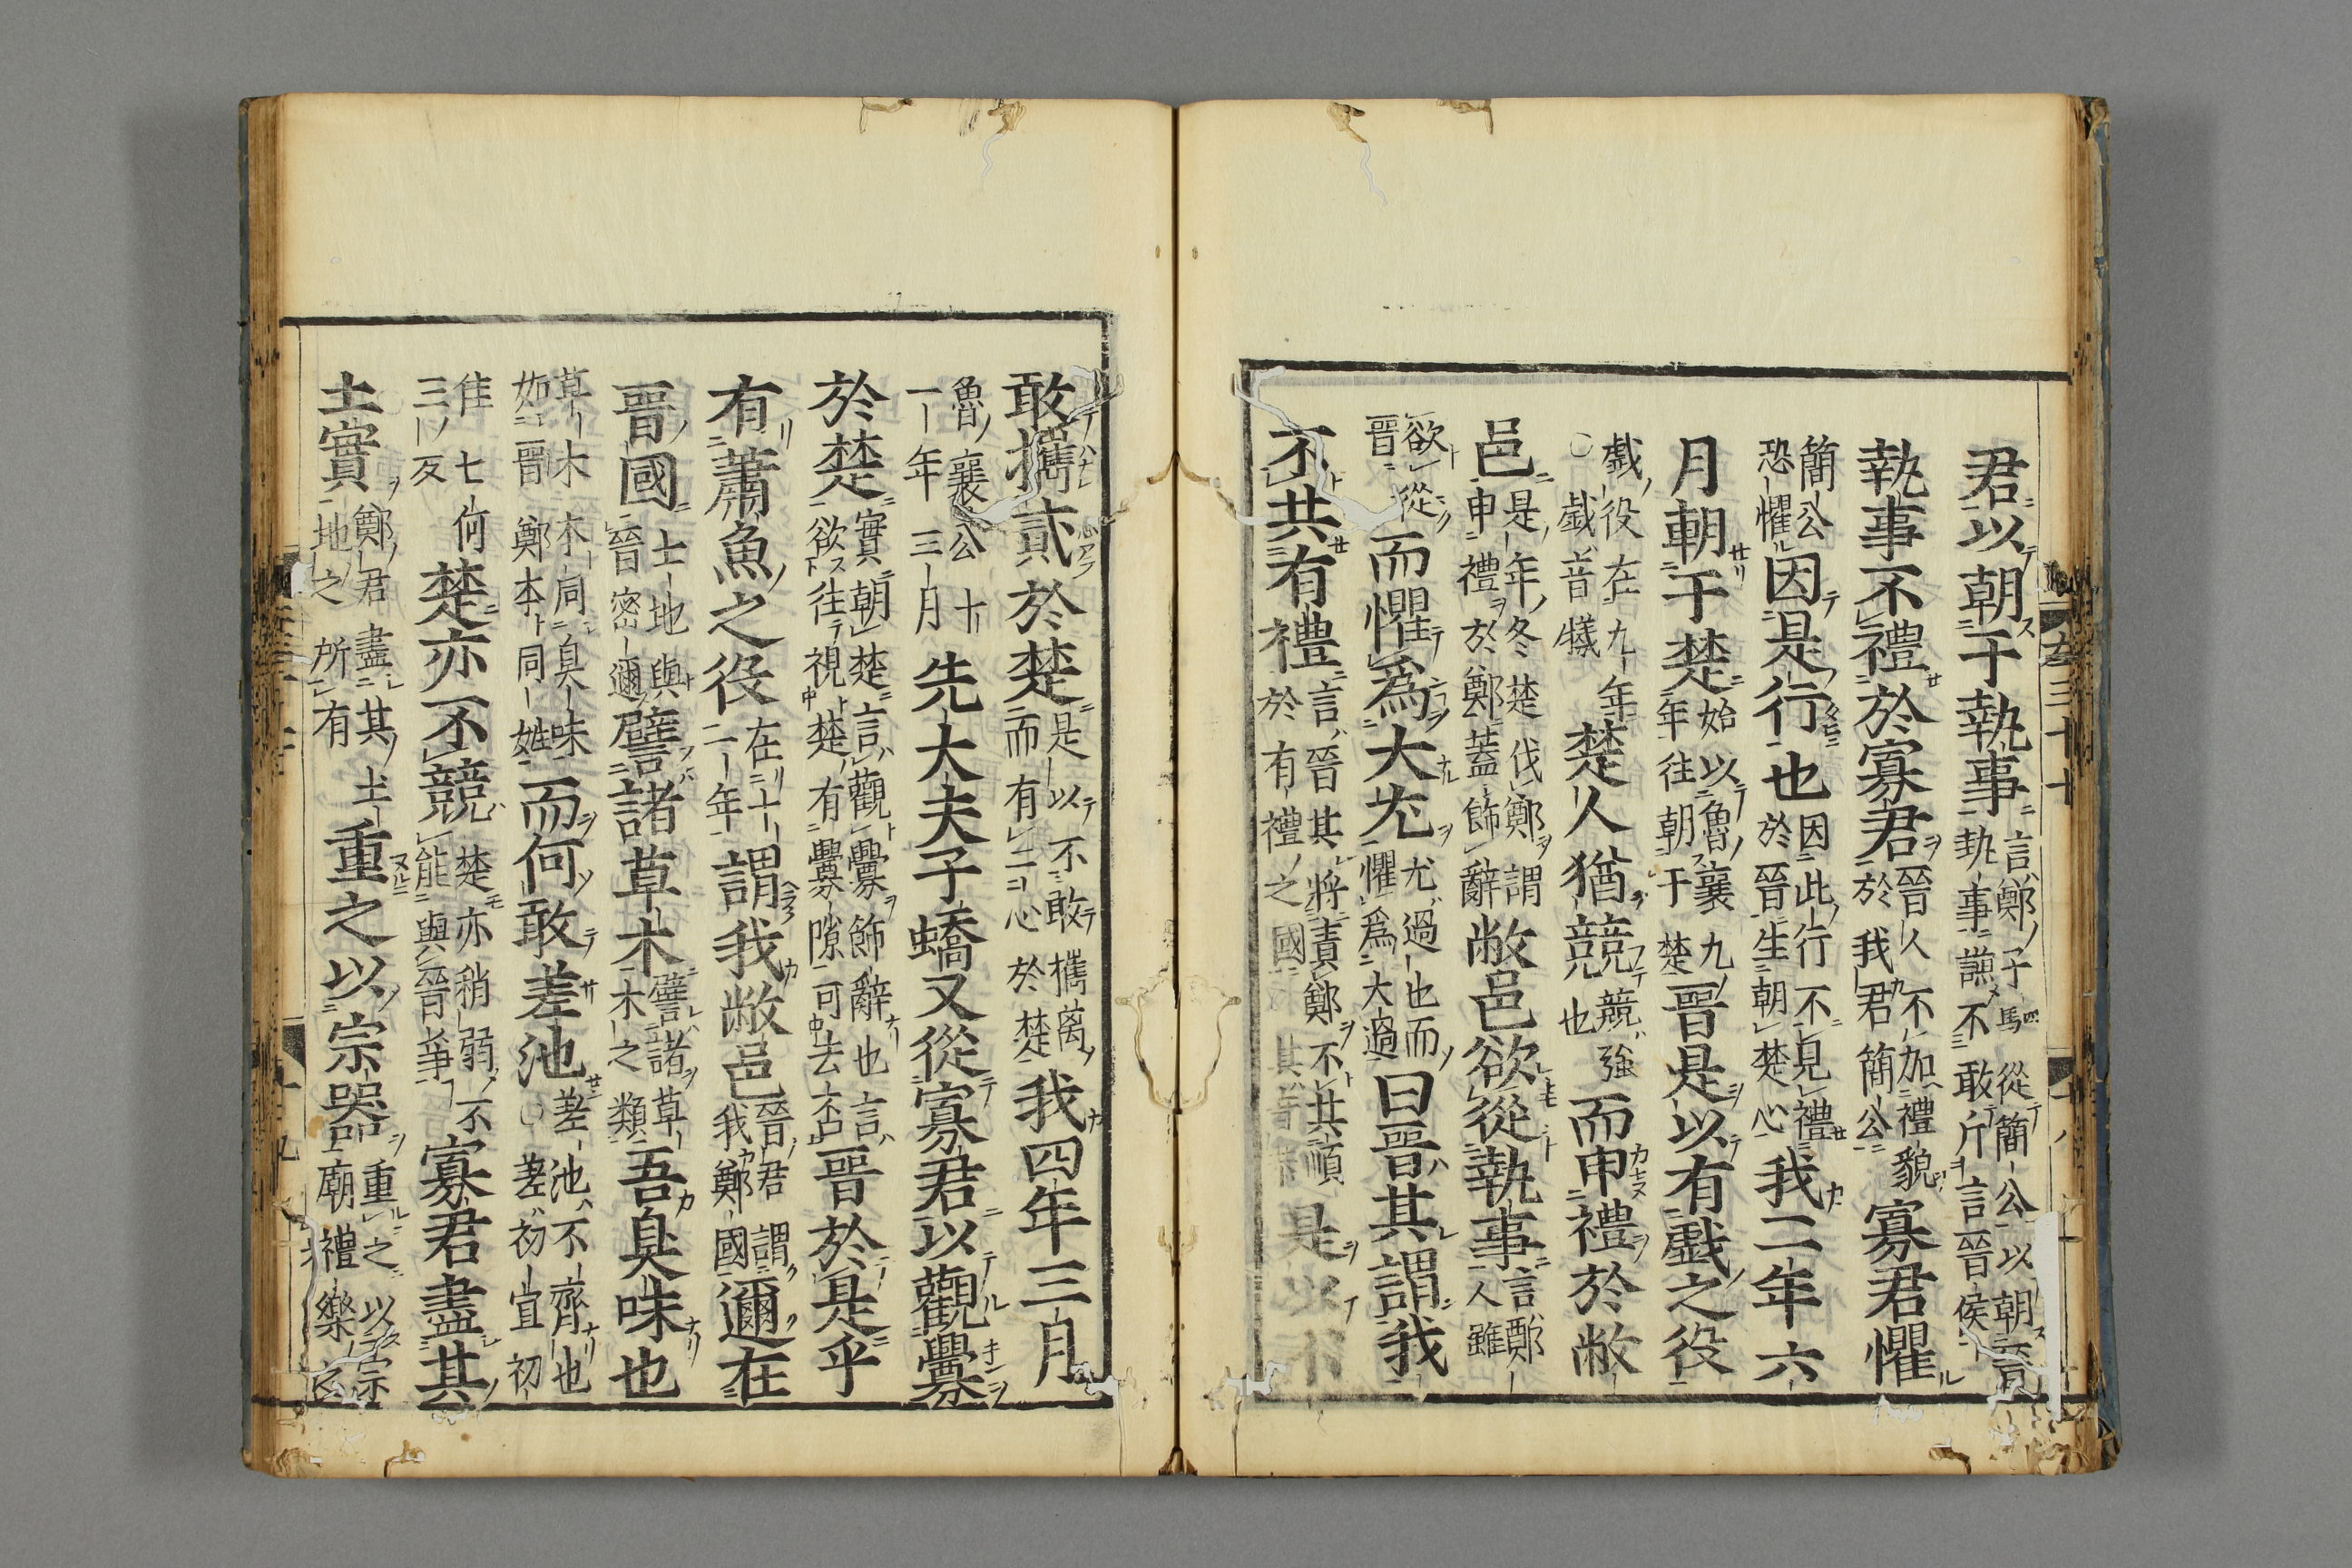 君以朝于執事言鄭子駟從簡公以朝晉執事謙不敢斥言晉侯
執事不禮於寡君晉人不加禮貌於我君簡公寡君懼
簡公恐懼因是行也因此行不見禮於晉生朝楚心我二年六
月朝于楚始以魯襄九年往朝于楚晉是以有戲之役
戲役在九年○戲音犧楚人猶競競強也而申禮於敝
邑是年冬楚伐鄭謂申禮於鄭蓋飾辭敝邑欲從執事言鄭人雖
欲從晉而懼爲大尤尤過也而懼爲大過曰晉其謂我
不共有禮言晉其將責鄭不共順於有禮之國是以不
敢攜貳於楚是以不敢攜离而有二心於楚我四年三月
魯襄公十一年三月先大夫子蟜又從寡君以觀釁
於楚實朝楚言觀釁飾辭也言欲往視楚有釁隙可去否晉於是乎
有蕭魚之役在十一年謂我敝邑晉君謂我鄭國邇在
晉國土地與晉密邇譬諸草木譬諸草木之類吾臭味也
草木本同臭味如晉鄭本同姓而何敢差池差池不齊也○差初宜初
佳七何三反楚亦不競楚亦稍弱不能與晉爭寡君盡其
土實鄭君盡其土地之所有重之以宗器重之以宗廟禮樂之